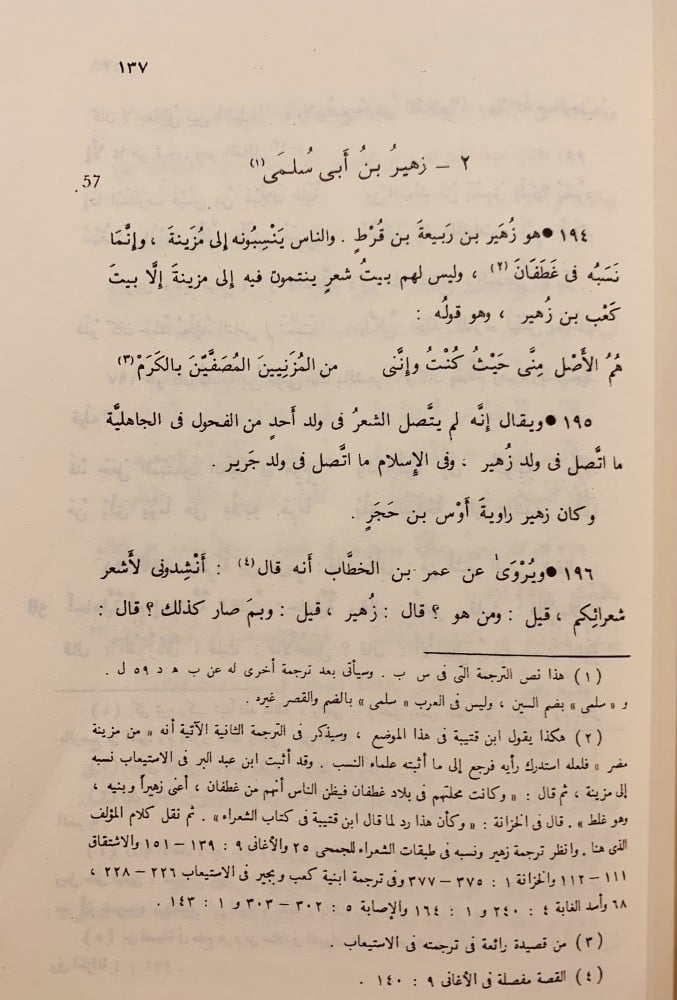 ١٣٧
٢ – زهيرُ بنُ أَبى سُلمَى (١)
57
١٩٤ ● هو زُهَير بن رَبيعةَ بن قُرْطٍ . والناس يَنْسِبُونه إلى مُزَينةَ ، وإنَّمَا
نَسَبُه فى غَطَفَانَ (٢) ، وليس لهم بيتُ شعرٍ ينتمون فيه إلى مزينةَ إلَّا بيتَ
كَعْب بن زُهير ، وهو قولُه :
هُمُ الأَصْل مِنِّى حَيْثُ كُنْتُ وإنَّنى من المُزَنِيِينَ المُصَفَّيْنَ بالكَرَمْ (٣)
١٩٥ ● ويقال إنَّه لم يتَّصل الشعرُ فى ولد أَحدٍ من الفحول فى الجاهليَّة
ما اتَّصل فى ولد زُهير ، وفى الإسلام ما اتَّصل فى ولد جَرير .
وكان زهير راويةَ أَوْس بن حَجَرٍ .
١٩٦ ● ويُرْوَىٰ عن عمر بن الخطَّاب أنه قال (٤) : أَنْشِدونى لأَشعر
شعرائِكم ، قيل : ومن هو ؟ قال : زُهير ، قيل : وبمَ صار كذلك ؟ قال :
( ١ ) هذا نص الترجمة التى فى س ب . وسيأتى بعد ترجمة أخرى له عن ب ه د ٥٩ ل .
و « سلمى » بضم السين ، وليس فى العرب « سلمى » بالضم والقصر غيره .
( ٢ ) هكذا يقول ابن قتيبة فى هذا الموضع ، وسيذكر فى الترجمة الثانية الآتية أنه « من مزينة
مضر » فلعله استدرك رأيه فرجع إلى ما أثبته علماء النسب . وقد أثبت ابن عبد البر فى الاستيعاب نسبه
إلى مزينة ، ثم قال : « وكانت محلتهم فى بلاد غطفان فيظن الناس أنهم من غطفان ، أعنى زهيراً وبنيه ،
وهو غلط » . قال فى الخزانة : « وكأن هذا رد لما قال ابن قتيبة فى كتاب الشعراء » . ثم نقل كلام المؤلف
الذى هنا . وانظر ترجمة زهير ونسبه فى طبقات الشعراء للجمحى ٢٥ والأغانى ٩ : ١٣٩ – ١٥١ والاشتقاق
١١١ – ١١٢ والخزانة ١ : ٣٧٥ – ٣٧٧ وفى ترجمة ابنية كعب وبجير فى الاستيعاب ٢٢٦ – ٢٢٨ ،
٦٨ وأسد الغابة ٤ : ٢٤٠ و ١ : ١٦٤ والإصابة ٥ : ٣٠٢ – ٣٠٣ و ١ : ١٤٣ .
( ٣ ) من قصيدة رائعة فى ترجمته فى الاستيعاب .
( ٤ ) القصة مفصلة فى الأغانى ٩ : ١٤٠ .